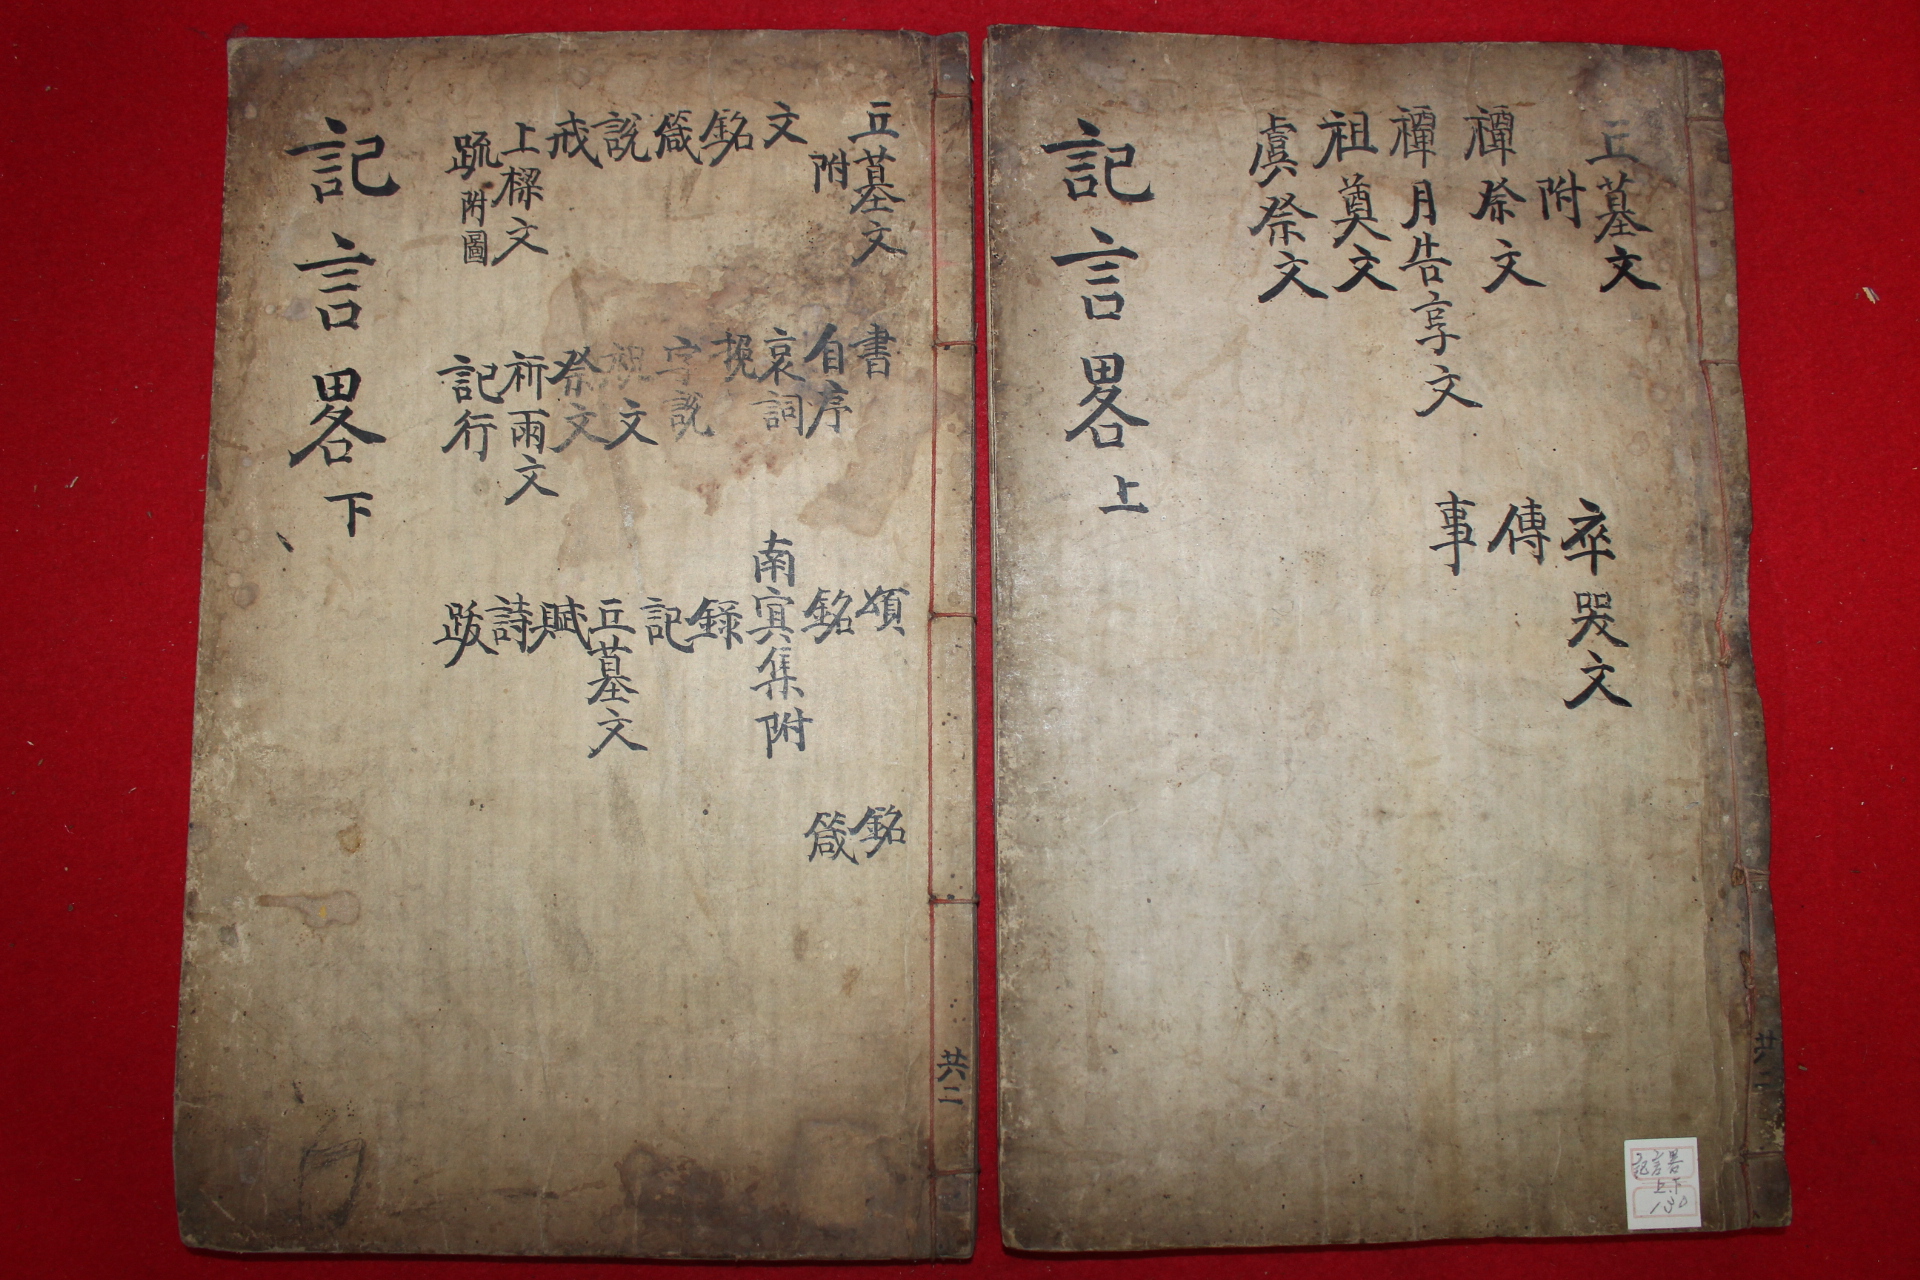 丘墓文
附
禫祭文
禫月告享文
祖奠文
虞祭文
卒哭文
傳
事
記言畧上
共二
記言畧
上下
130
丘墓文
附
文
銘
箴
說
戒
上樑文
疏附圖
書
自序
哀詞
挽
字說
祝文
祭文
祈雨文
記行
頌
銘
南㝠集附
錄
記
丘墓文
賦
詩
跋
銘
箴
記言畧下
共二